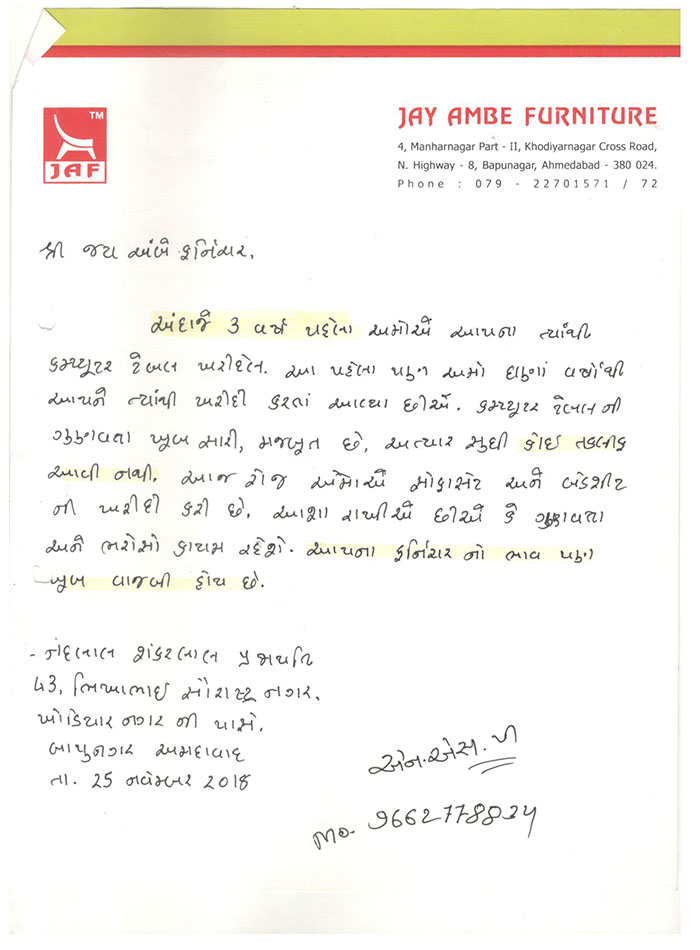 TM
JAF
JAY AMBE FURNITURE
4, Manharnagar Part - II, Khodiyarnagar Cross Road,
N. Highway - 8, Bapunagar, Ahmedabad - 380 024.
Phone : 079 - 22701571 / 72
શ્રી જય અંબે ફર્નિચર,
અંદાજે 3 વર્ષ પહેલા અમોએ આપના ત્યાંથી
કમ્પ્યુટર ટેબલ ખરીદેલ. આ પહેલા પણ અમો ઘણાં વર્ષોથી
આપને ત્યાંથી ખરીદી કરતાં આવ્યા છીએ. કમ્પ્યુટર ટેબલ ની
ગુણવતા ખુબ સારી, મજબુત છે, અત્યાર સુધી કોઇ તકલીફ
આવી નથી. આજ રોજ અમોએ સોફાસેટ અને બેડશીટ
ની ખરીદી કરી છે. આશા રાખીએ છીએ કે ગુણવતા
અને ભરોસો કાયમ રહેશે. આપના ફર્નિચર નો ભાવ પણ
ખુબ વાજબી હોય છે.
- નંદલાલ શંકરલાલ પ્રજાપતિ
43, ભિખાભાઇ સૌરાષ્ટ્ર નગર,
ખોડિયાર નગર ની પાસે,
બાપુનગર અમદાવાદ
તા. 25 નવેમ્બર 2018
એન.એસ.પી
Mo.